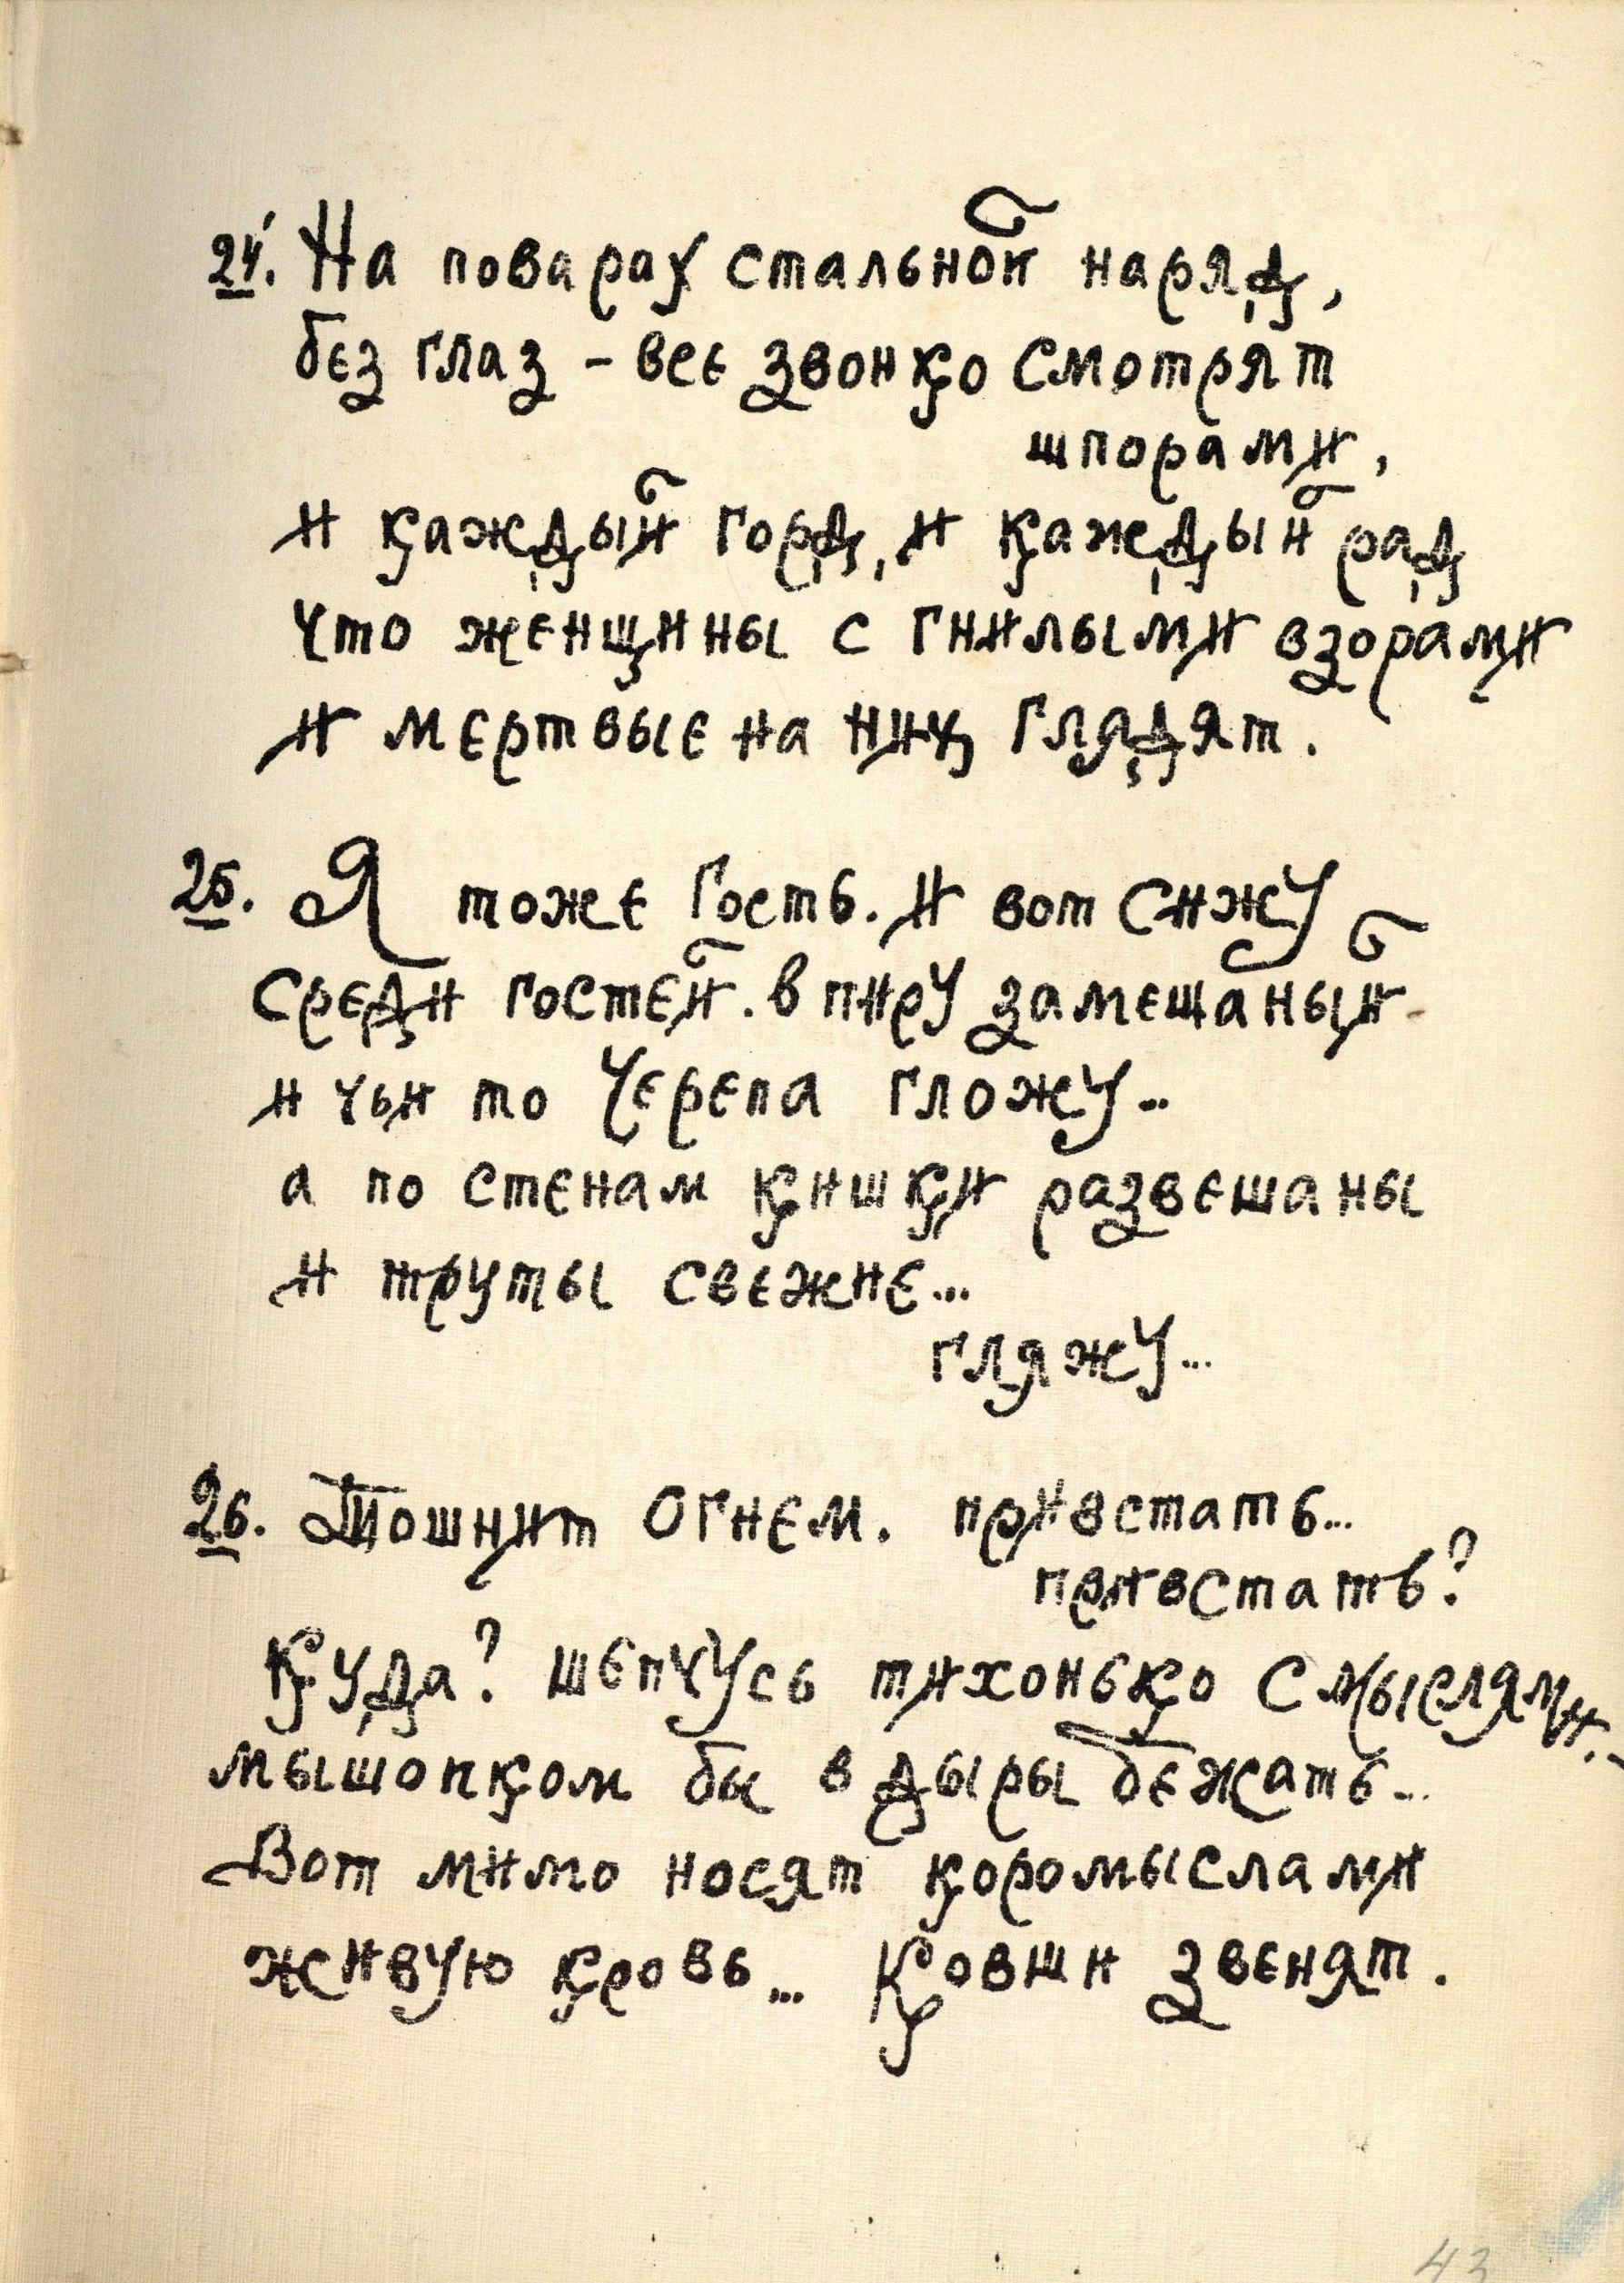 24. На поварах стальной наряд,
без глаз – все звонко смотрят
шпорами,
и каждый горд, и каждый рад
что женщины с гнилыми взорами
и мертвые на них глядят.
25. Я тоже Гость. И вот сижу
среди гостей. в пиру замешаный
и чьи то Черепа гложу..
а по стенам кишки развешаны
и трупы свежие...
гляжу...
26. Тошнит Огнем. привстать...
привстать?
Куда? шепчусь тихонько с мыслями..
мышонком бы в дыры бежать...
Вот мимо носят коромыслами
живую кровь... Ковши звенят.
43